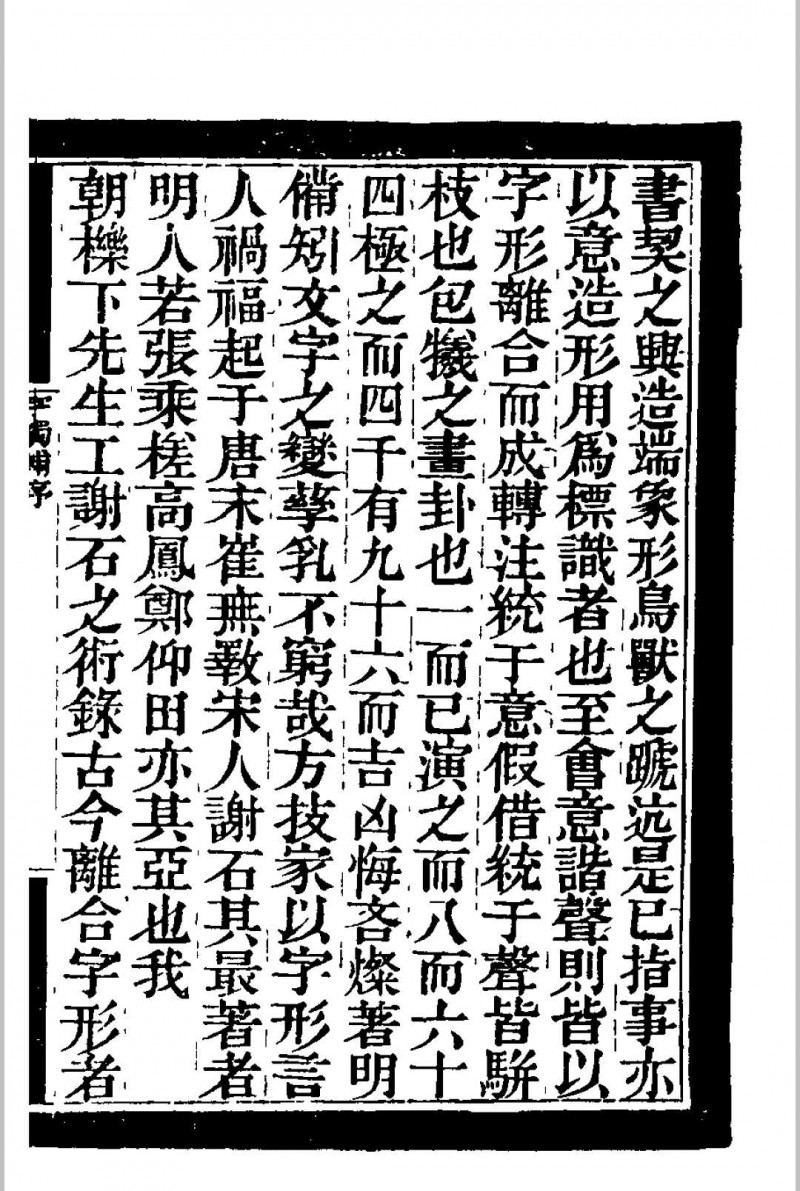 書契之興造端象形鳥獸之蹏迒是已指事亦
以意造形用爲標識者也至會意諧聲則皆以
字形離合而成轉注統于意假借統于聲皆駢
枝也包犧之畫卦也一而已演之而八而六十
四極之而四千有九十六而吉凶悔吝燦著明
備矧文字之變孳乳不窮哉方技家以字形言
人禍福起于唐末崔無斁宋人謝石其最著者
明人若張乘槎高鳳鄭仰田亦其亞也我
朝櫟下先生工謝石之術錄古今離合字形者
字觸補序